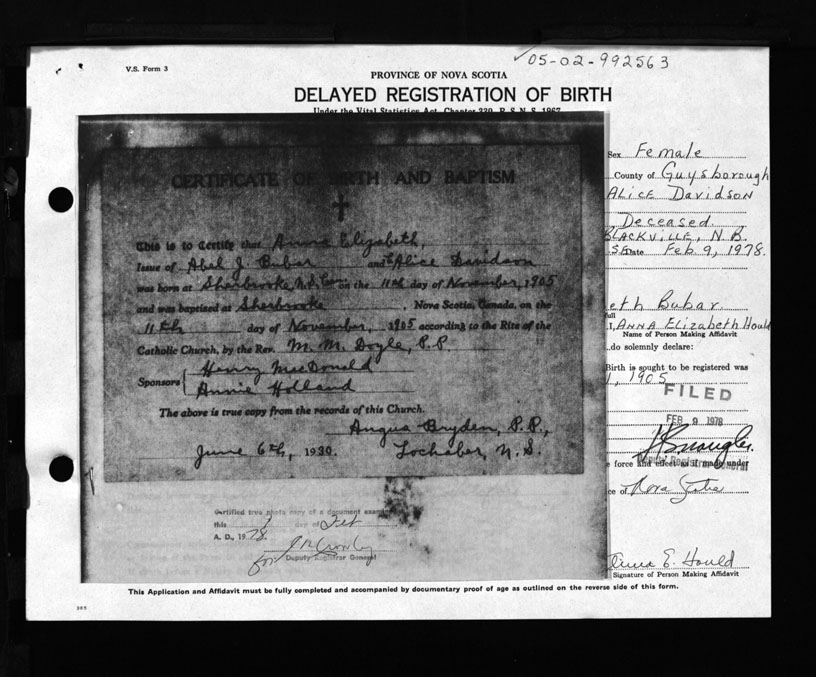 05-02-992563
V.S. Form 3
PROVINCE OF NOVA SCOTIA
DELAYED REGISTRATION OF BIRTH
Under the Vital Statistics Act, Chapter 330, R.S.N.S. 1967
CERTIFICATE OF BIRTH AND BAPTISM
This is to Certify that Anna Elizabeth,
Issue of Abel J Bubar and Alice Davidson
was born at Sherbrooke, N.S. on the 11th day of November, 1905
and was baptised at Sherbrooke, Nova Scotia, Canada, on the
11th day of November, 1905 according to the Rite of the
Catholic Church, by the Rev. M. M. Doyle, P.P.
Sponsors Henry MacDonald
Annie Holland
The above is true copy from the records of this Church.
Angus Bryden, P.P.,
June 6th, 1930. Lochaber, N.S.
Certified true photo copy of a document
this 1 day of Feb
A. D., 1978.
for
Deputy Registrar General
Sex Female
County of Guysborough
ALICE Davidson
Deceased
BLACKVILLE, N.B.
Date Feb. 9, 1978.
eth Bubar
full
I, ANNA Elizabeth Hould
Name of Person Making Affidavit
do solemnly declare:
Birth is sought to be registered was
1, 1905
FILED
FEB 9 1978
Deputy Registrar General
e force and effect as if made under
ce of Nova Scotia
Anna E. Hould
Signature of Person Making Affidavit
This Application and Affidavit must be fully completed and accompanied by documentary proof of age as outlined on the reverse side of this form.